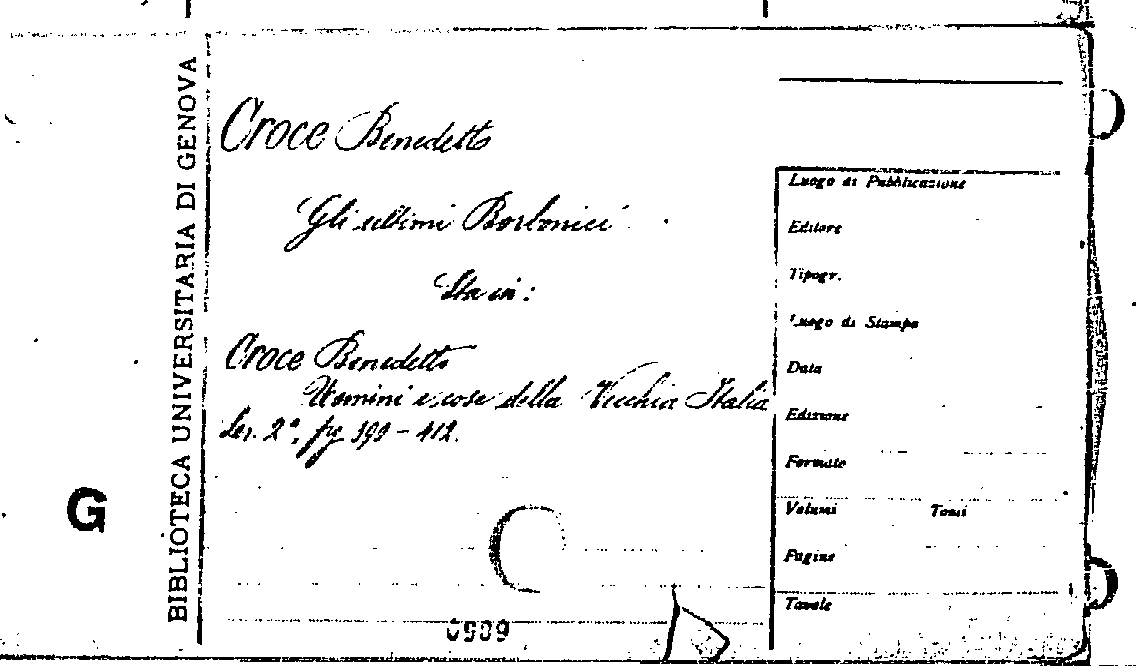 BIBLIOTECA UNIVERSITARIA DI GENOVA
G
Croce Benedetto
Gli ultimi Borbonici
Sta in:
Croce Benedetto
Uomini e cose della Vecchia Italia
Ser. 2ª, pg. 390 - 412.
Luogo di Pubblicazione
Editore
Tipogr.
Luogo di Stampa
Data
Edizione
Formato
Volumi Tomi
Pagine
Tavole